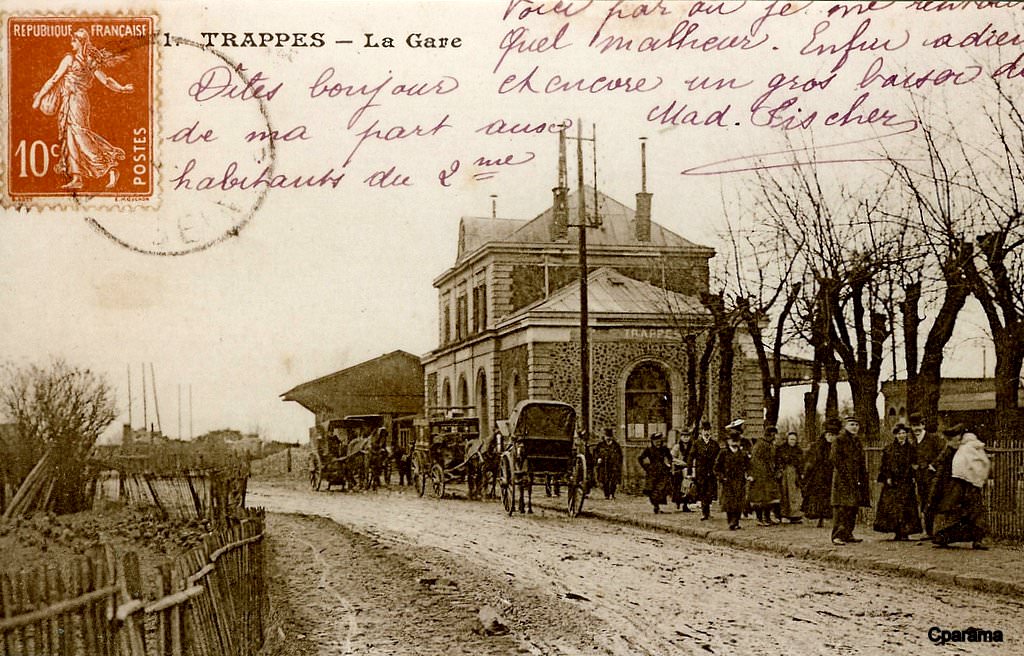 REPUBLIQUE FRANÇAISE
10c POSTES
1. TRAPPES – La Gare
Voici par où je me
Quel malheur. Enfin adieu
Dîtes bonjour et encore un gros baiser de
de ma part aux Mad. Fischer
habitants du 2me
TRAPPES
Cparama